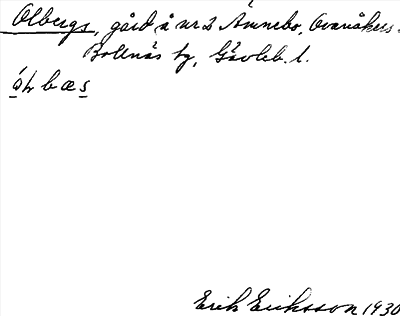 Olbergs, gård å nr 2 Ämnebo, Ovanåkers
Bollnäs tg, Gävleb. l.
Erik Eriksson 1930